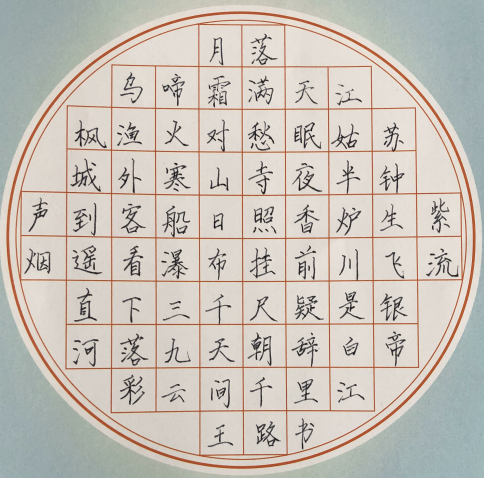 月落
乌啼霜满天江
枫渔火对愁眠姑苏
城外寒山寺夜半钟
声到客船日照香炉生紫
烟遥看瀑布挂前川飞流
直下三千尺疑是银
河落九天朝辞白帝
彩云间千里江
王路书